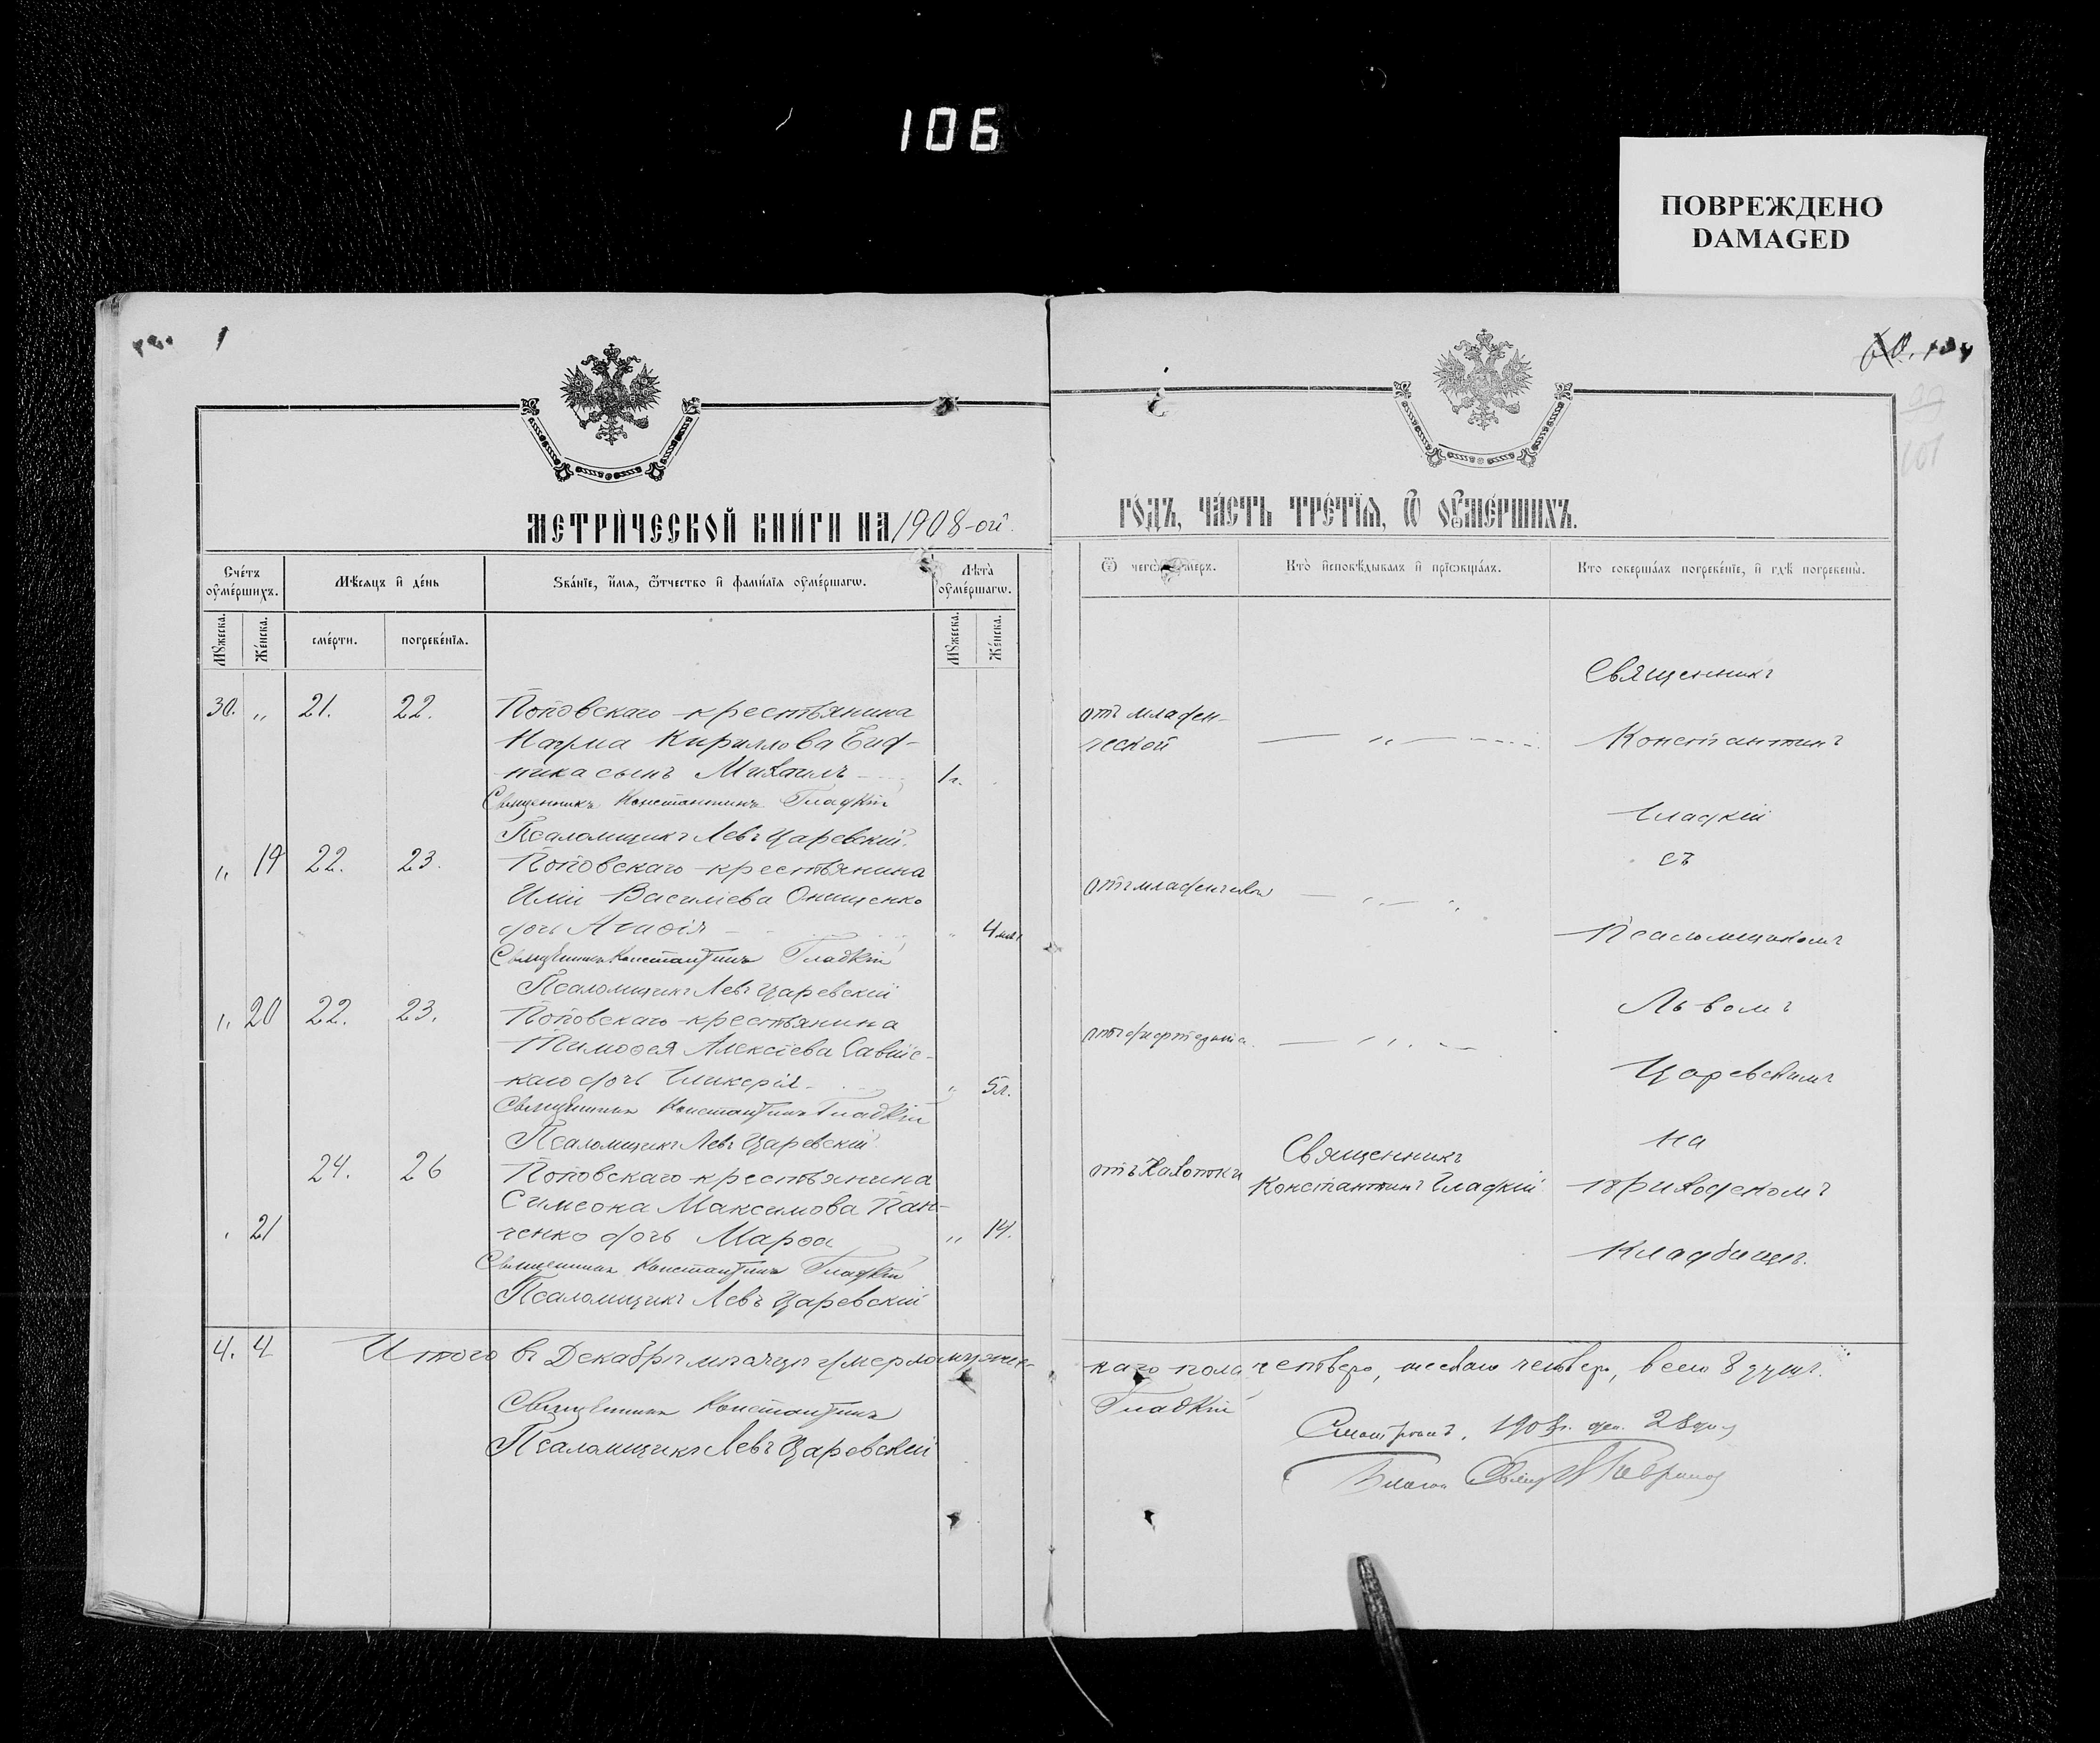 106
ПОВРЕЖДЕНО
DAMAGED
МЕТРИЧЕСКОЙ КНИГИ НА 1908-ой
ГОДЪ, ЧАСТЬ ТРЕТІЯ, Ѿ ОУМЕРШИХЪ.
Счетъ оумершихъ.
Мѣсяцъ и день
Званіе, имя, отчество и фамилія оумершагѡ.
Лѣта оумершагѡ.
Ѿ чего оумеръ.
Кто исповѣдывалъ и пріѡбщалъ.
Кто совершалъ погребеніе, и гдѣ погребены.
Мужеска.
Женска.
смерти.
погребенія.
Мужеска.
Женска.
30. „ 21. 22. Поповскаго крестьянина
Наума Кириллова Бид-
ника сынъ Михаилъ 1 г.
Священникъ Константинъ Гладкій
Псаломщикъ Левъ Царевскій.
„ 19 22. 23. Поповскаго крестьянина
Иліи Василіева Онищенко
дочь Агафія 4 м.
Священникъ Константинъ Гладкій
Псаломщикъ Левъ Царевскій
„ 20 22. 23. Поповскаго крестьянина
Тимоѳея Алексіева
дочь Гликерія „ 5 л.
Священникъ Константинъ Гладкій
Псаломщикъ Левъ Царевскій
24. 26 Поповскаго крестьянина
Симеона Максимова Пан-
21 ченко дочь Марѳа „ 14.
Священникъ Константинъ Гладкій
Псаломщикъ Левъ Царевскій
отъ младен-
ческой
отъ младенческой
отъ чахотки
Священникъ
Константинъ Гладкій
Священникъ
Константинъ
Гладкій
съ
Псаломщикомъ
Львомъ
Царевскимъ
на
приходскомъ
кладбищѣ.
4. 4 Итого въ Декабрѣ мѣсяцѣ умерло мужес-
каго пола четверо, женскаго четверо, всего 8 душъ.
Священникъ Константинъ Гладкій
Псаломщикъ Левъ Царевскій
Смотрѣлъ. 1908 г. дек. 28 дня